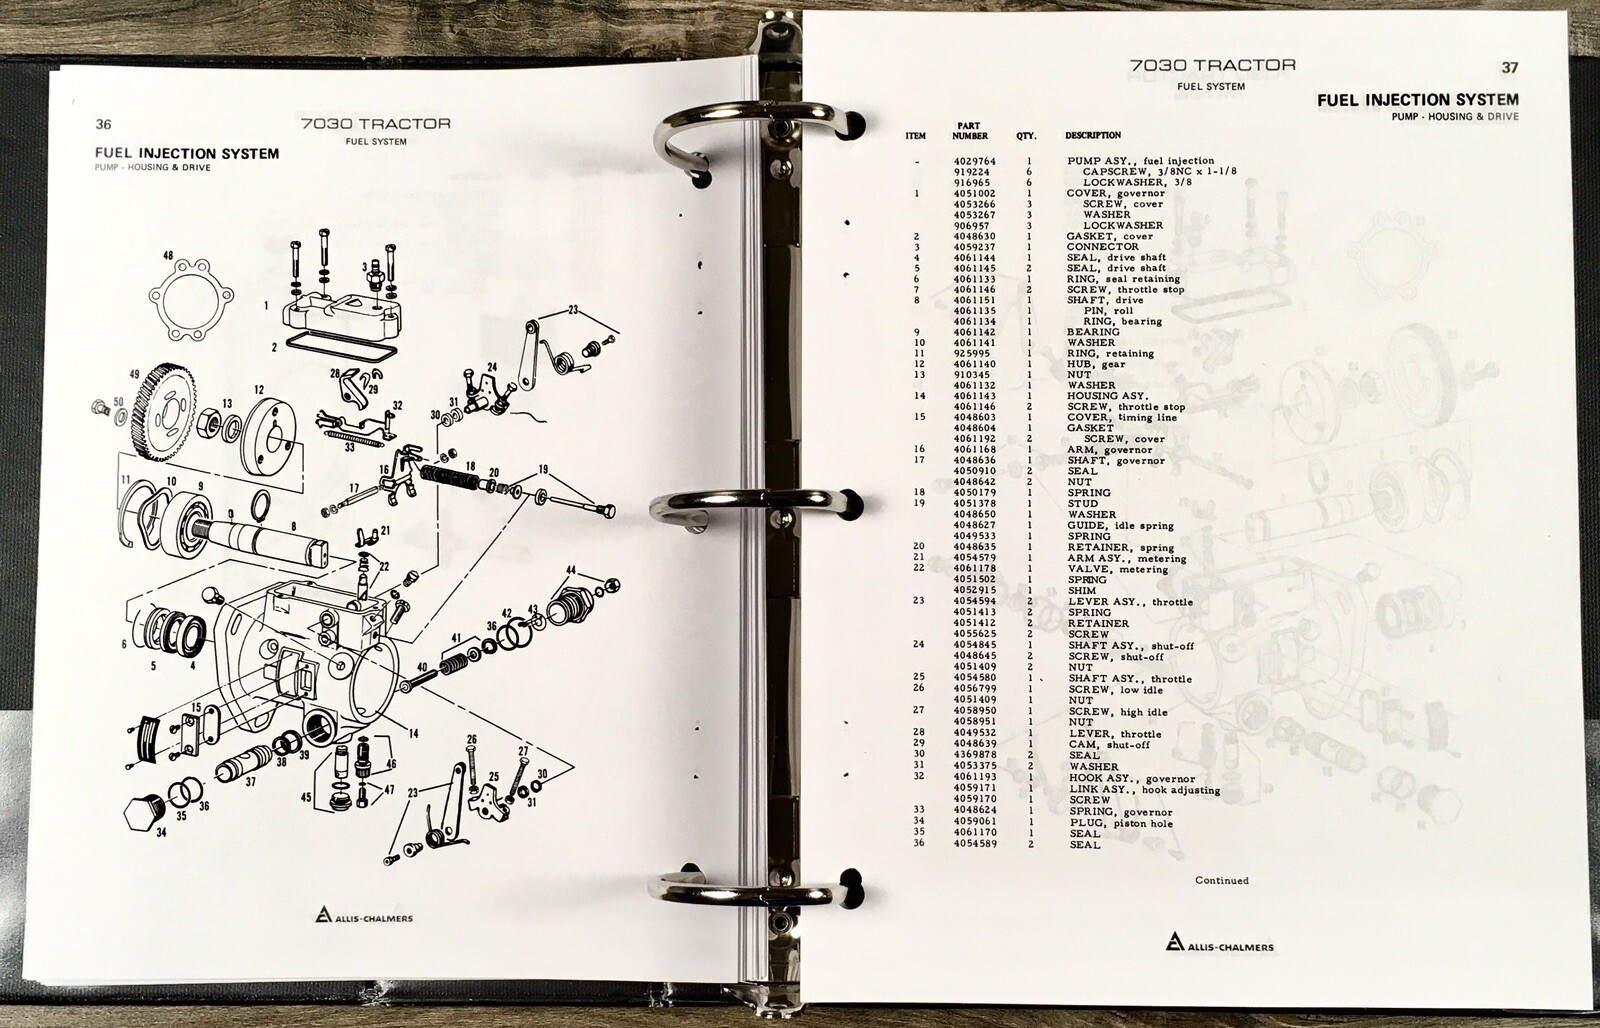 36
7030 TRACTOR
FUEL SYSTEM
FUEL INJECTION SYSTEM
PUMP - HOUSING & DRIVE
48
3
1
2
23
49
50
13
12
28
29
24
32
30
31
33
11
10
9
16
18
20
19
17
8
21
22
44
6
5
4
42
43
36
41
40
15
14
38
39
37
46
45
47
26
27
25
30
31
23
36
35
34
ALLIS-CHALMERS
7030 TRACTOR
37
FUEL SYSTEM
FUEL INJECTION SYSTEM
PUMP - HOUSING & DRIVE
ITEM PART NUMBER QTY. DESCRIPTION
- 4029764 1 PUMP ASY., fuel injection
919224 6 CAPSCREW, 3/8NC x 1-1/8
916965 6 LOCKWASHER, 3/8
1 4051002 1 COVER, governor
4053266 3 SCREW, cover
4053267 3 WASHER
906957 3 LOCKWASHER
2 4048630 1 GASKET, cover
3 4059237 1 CONNECTOR
4 4061144 1 SEAL, drive shaft
5 4061145 2 SEAL, drive shaft
6 4061133 1 RING, seal retaining
7 4061146 2 SCREW, throttle stop
8 4061151 1 SHAFT, drive
4061135 1 PIN, roll
4061134 1 RING, bearing
9 4061142 1 BEARING
10 4061141 1 WASHER
11 925995 1 RING, retaining
12 4061140 1 HUB, gear
13 910345 1 NUT
4061132 1 WASHER
14 4061143 1 HOUSING ASY.
4061146 2 SCREW, throttle stop
15 4048603 1 COVER, timing line
4048604 1 GASKET
4061192 2 SCREW, cover
16 4061168 1 ARM, governor
17 4048636 1 SHAFT, governor
4050910 2 SEAL
4048642 2 NUT
18 4050179 1 SPRING
19 4051378 1 STUD
4048650 1 WASHER
4048627 1 GUIDE, idle spring
4049533 1 SPRING
20 4048635 1 RETAINER, spring
21 4054579 1 ARM ASY., metering
22 4061178 1 VALVE, metering
4051502 1 SPRING
4052915 1 SHIM
23 4054594 2 LEVER ASY., throttle
4051413 2 SPRING
4051412 2 RETAINER
4055625 2 SCREW
24 4054845 1 SHAFT ASY., shut-off
4048645 2 SCREW, shut-off
4051409 2 NUT
25 4054580 1 SHAFT ASY., throttle
26 4056799 1 SCREW, low idle
4051409 1 NUT
27 4058950 1 SCREW, high idle
4058951 1 NUT
28 4049532 1 LEVER, throttle
29 4048639 1 CAM, shut-off
30 4369878 2 SEAL
31 4053375 2 WASHER
32 4061193 1 HOOK ASY., governor
4059171 1 LINK ASY., hook adjusting
4059170 1 SCREW
33 4048624 1 SPRING, governor
34 4059061 1 PLUG, piston hole
35 4061170 1 SEAL
36 4054589 2 SEAL
Continued
ALLIS-CHALMERS